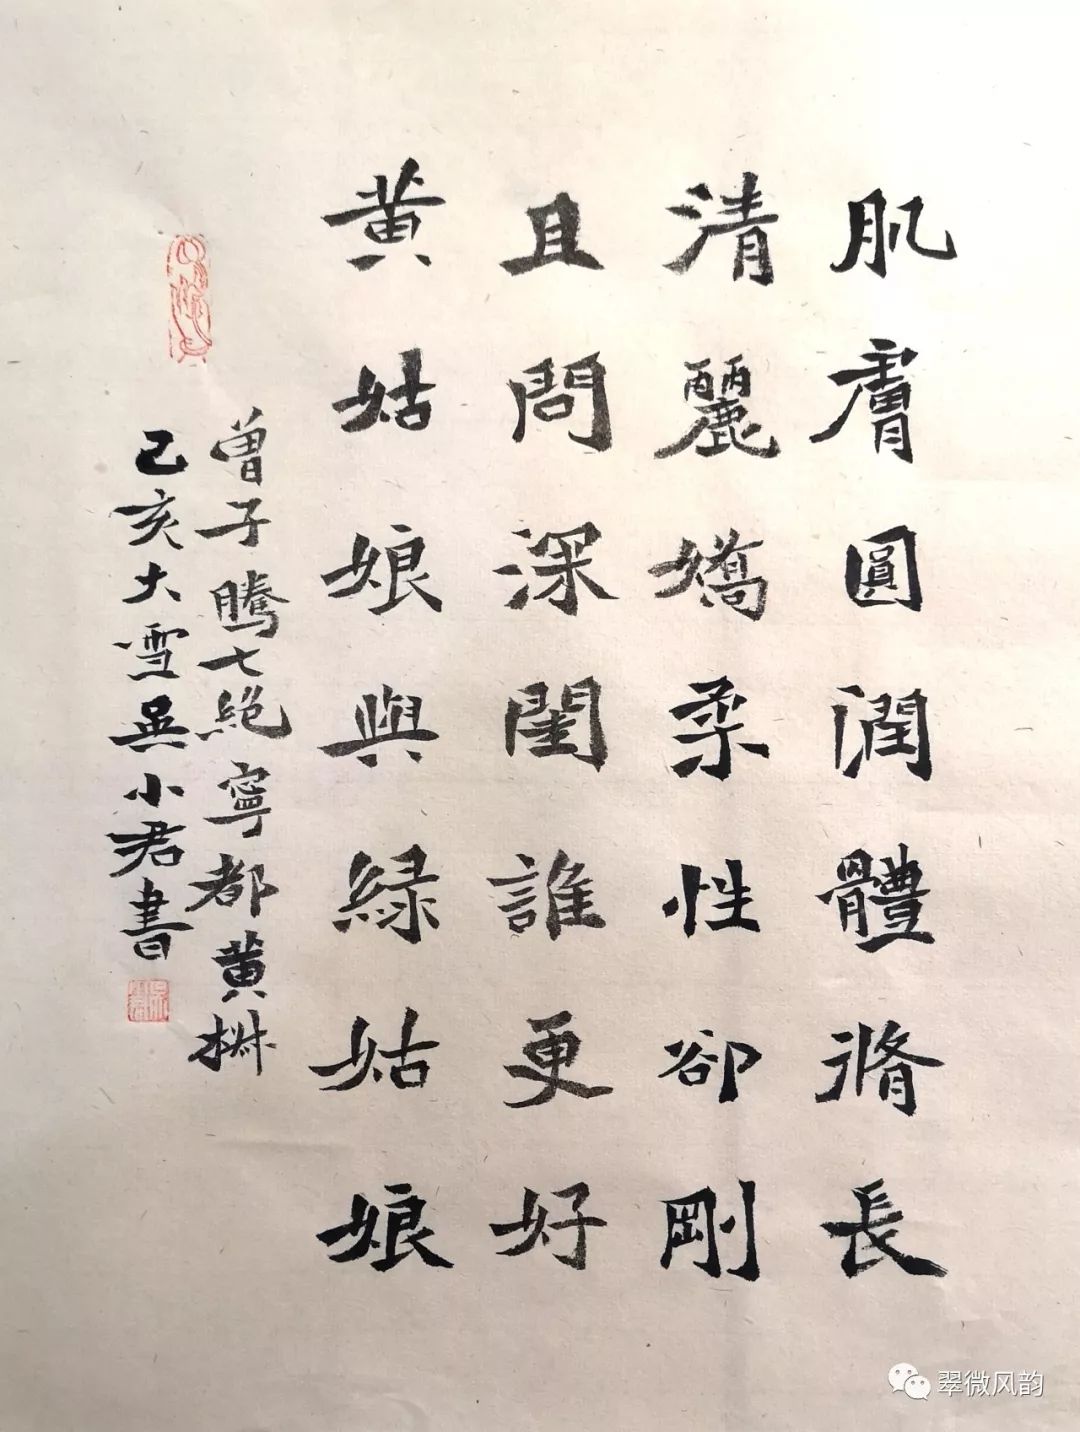 肌膚圓潤體脩長
清麗嬌柔性卻剛
且問深閨誰更好
黃姑娘與綠姑娘
曾子騰七絕寧都黃椒
己亥大雪吳小君書
翠微风韵